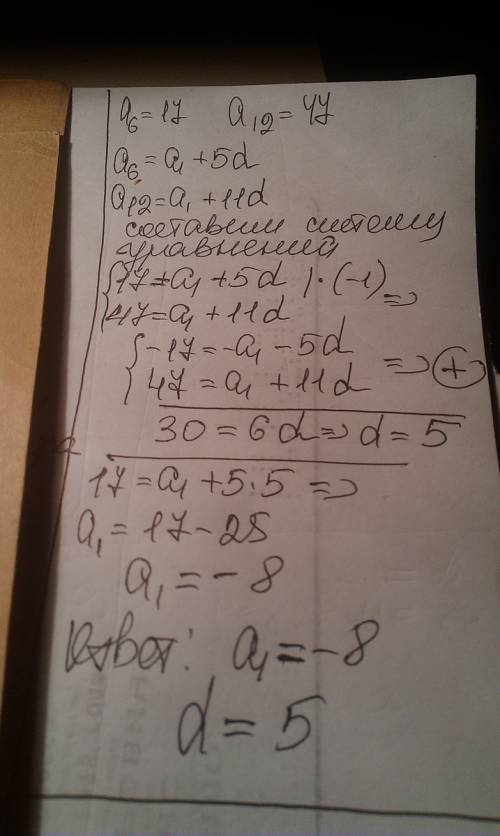 a₆=17 a₁₂=47
a₆=a₁+5d
a₁₂=a₁+11d
составим систему
уравнений
{17=a₁+5d |·(-1) =>
{47=a₁+11d
{-17=-a₁-5d => (+)
{47=a₁+11d
30=6d=>d=5
17=a₁+5·5 =>
a₁=17-25
a₁=-8
Ответ: a₁=-8
d=5